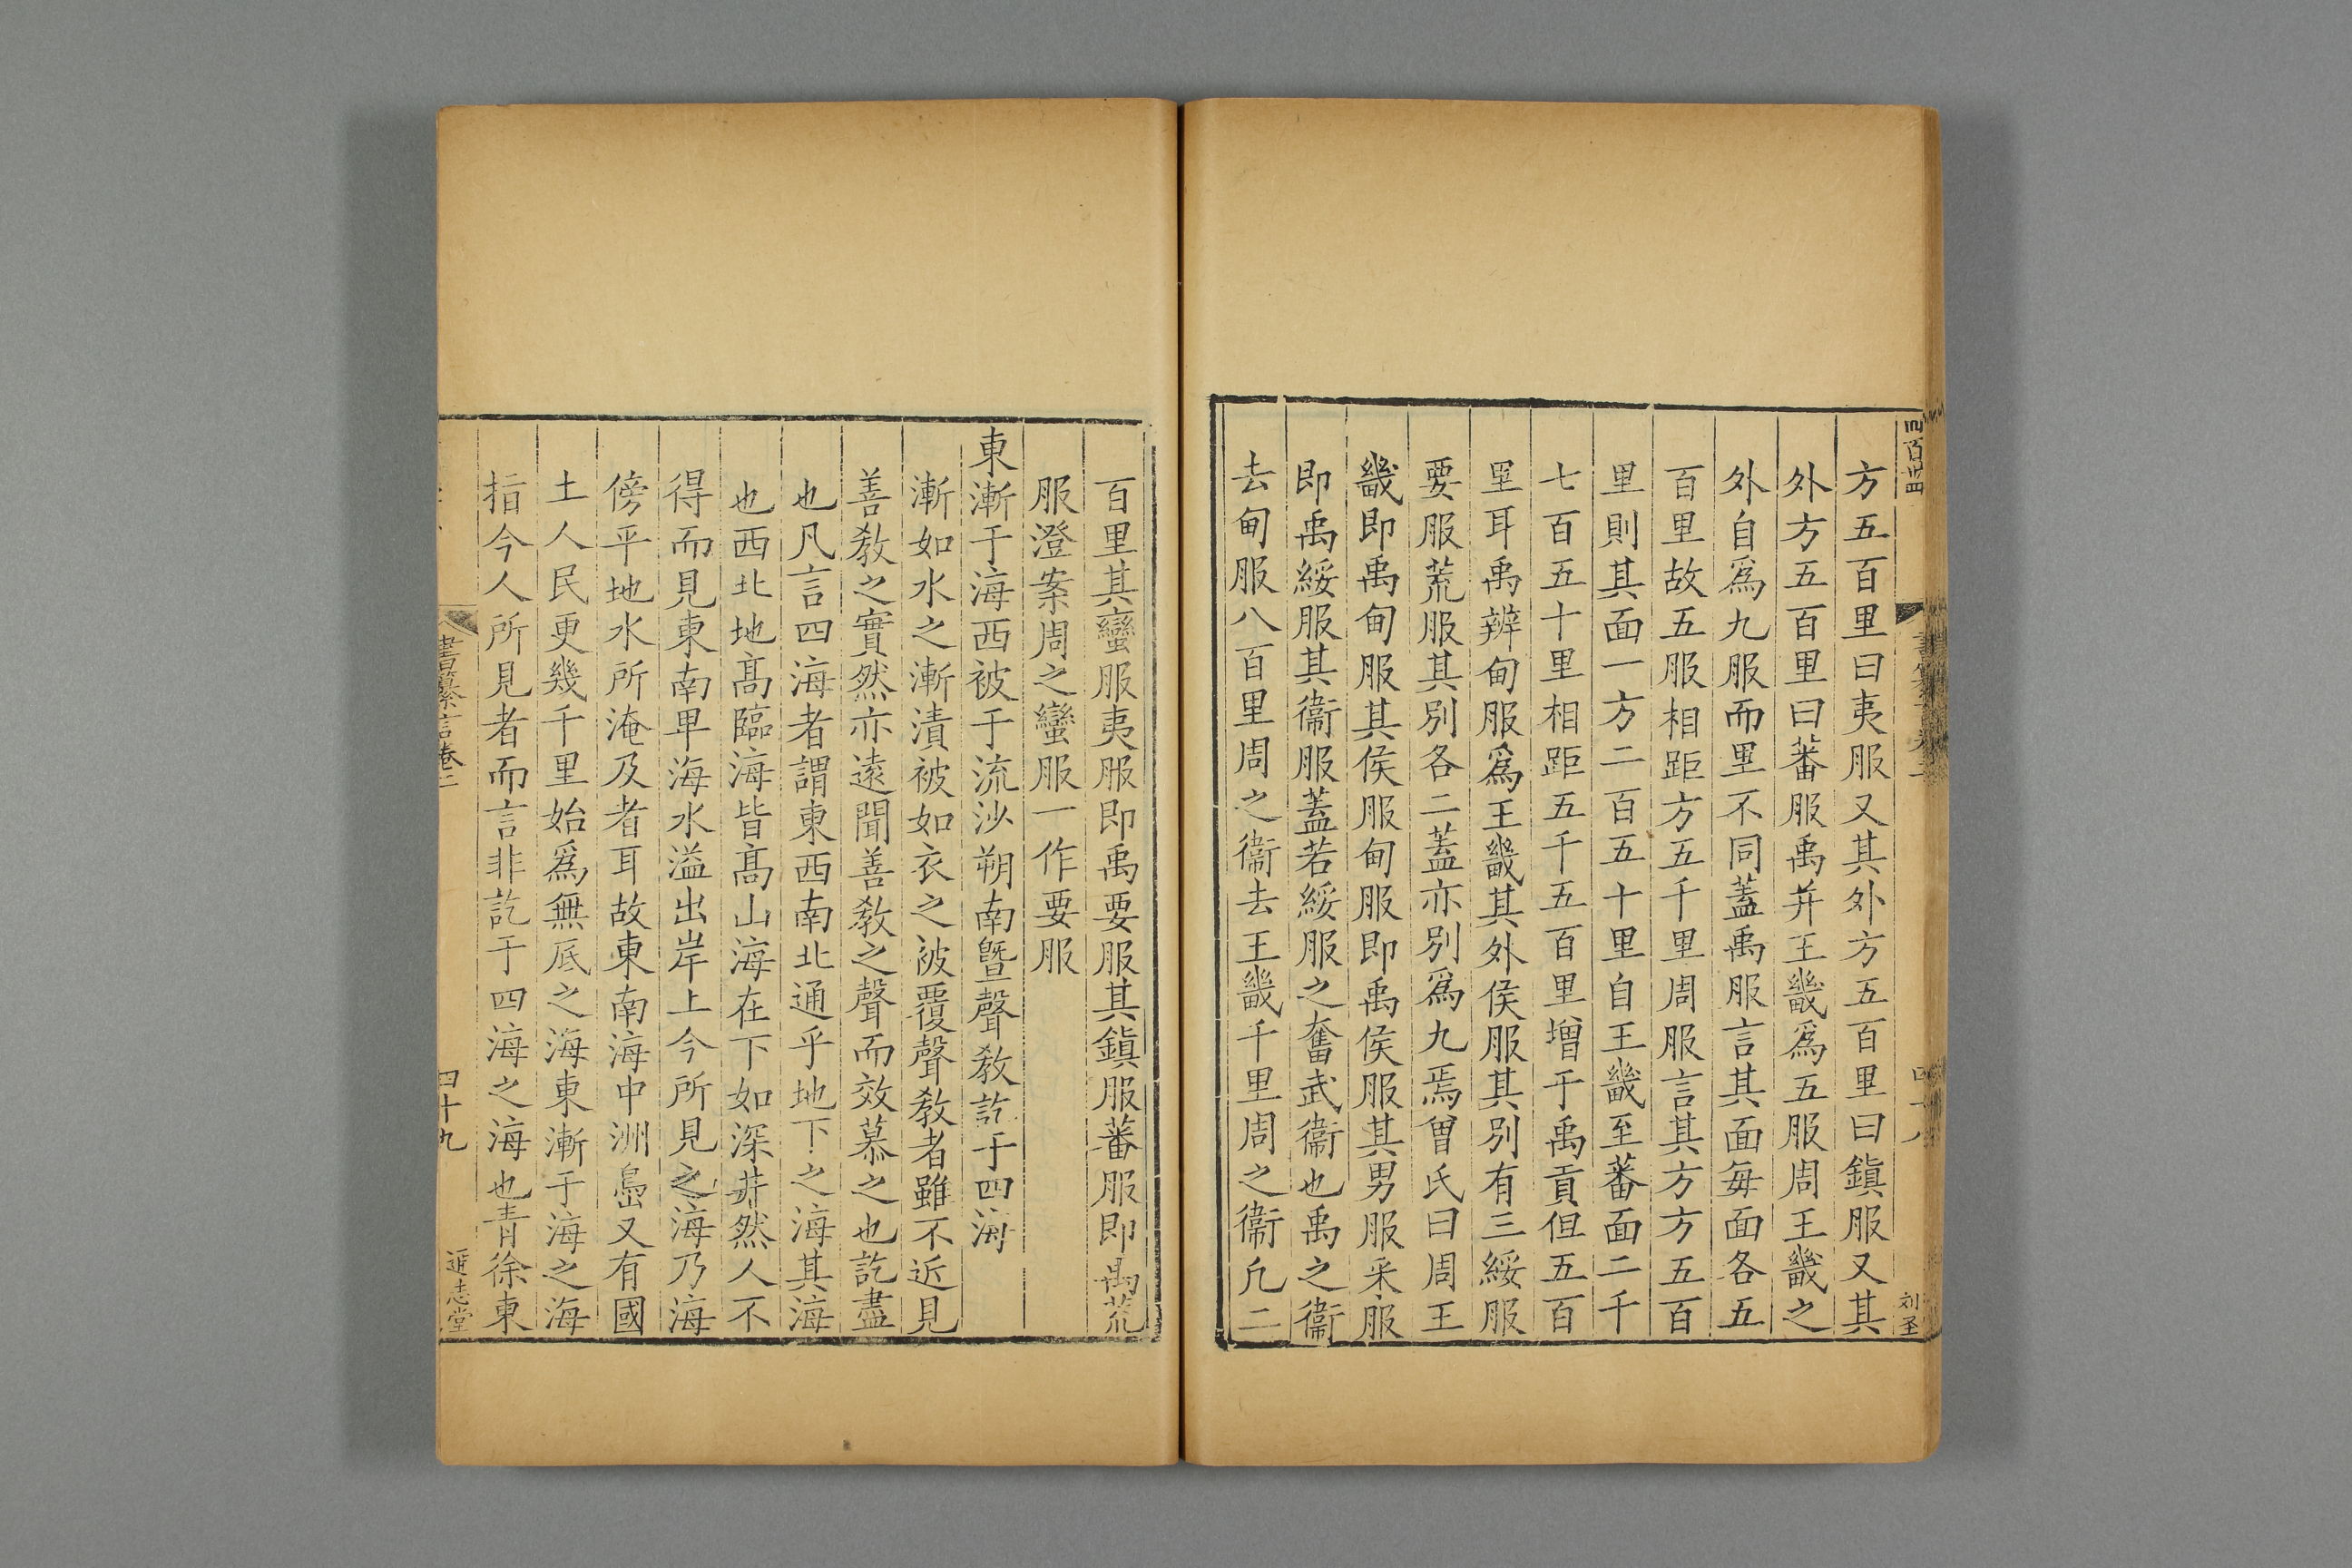 四百四
方五百里曰夷服又其外方五百里曰鎭服又其
外方五百里曰蕃服禹幷王畿爲五服周王畿之
外自爲九服而里不同蓋禹服言其面每面各五
百里故五服相距方五千里周服言其方方五百
里則其面一方二百五十里自王畿至蕃面二千
七百五十里相距五千五百里增于禹貢但五百
里耳禹辨甸服爲王畿其外侯服其別有三綏服
要服荒服其別各二蓋亦別爲九焉曾氏曰周王
畿即禹甸服其侯服甸服即禹侯服其男服采服
即禹綏服其衞服蓋若綏服之奮武衞也禹之衞
去甸服八百里周之衞去王畿千里周之衞凡二
百里其蠻服夷服即禹要服其鎭服蕃服即禹荒
服澄案周之蠻服一作要服
東漸于海西被于流沙朔南曁聲敎訖于四海
漸如水之漸漬被如衣之被覆聲敎者雖不近見
善敎之實然亦遠聞善敎之聲而效慕之也訖盡
也凡言四海者謂東西南北通乎地下之海其海
也西北地髙臨海皆髙山海在下如深井然人不
得而見東南卑海水溢出岸上今所見之海乃海
傍平地水所淹及者耳故東南海中洲島又有國
土人民更幾千里始爲無底之海東漸于海之海
指今人所見者而言非訖于四海之海也青徐東
書纂言卷二
四十九
通志堂